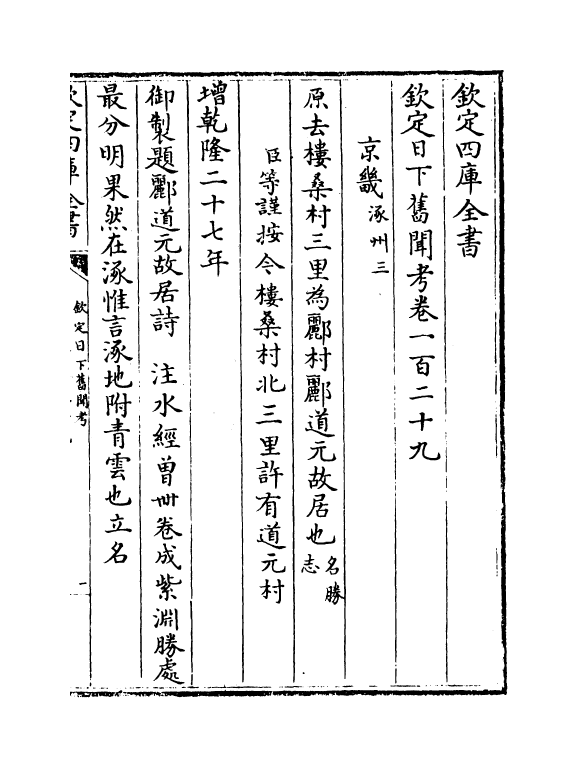 欽定四庫全書
欽定日下舊聞考卷一百二十九
京畿涿州三
原去樓桑村三里為酈村酈道元故居也名勝志
臣等謹按今樓桑村北三里許有道元村
增乾隆二十七年
御製題酈道元故居詩　注水經曽卌卷成紫淵勝處
最分明果然在涿惟言涿地附青雲也立名
欽定四庫全書
欽定日下舊聞考
一